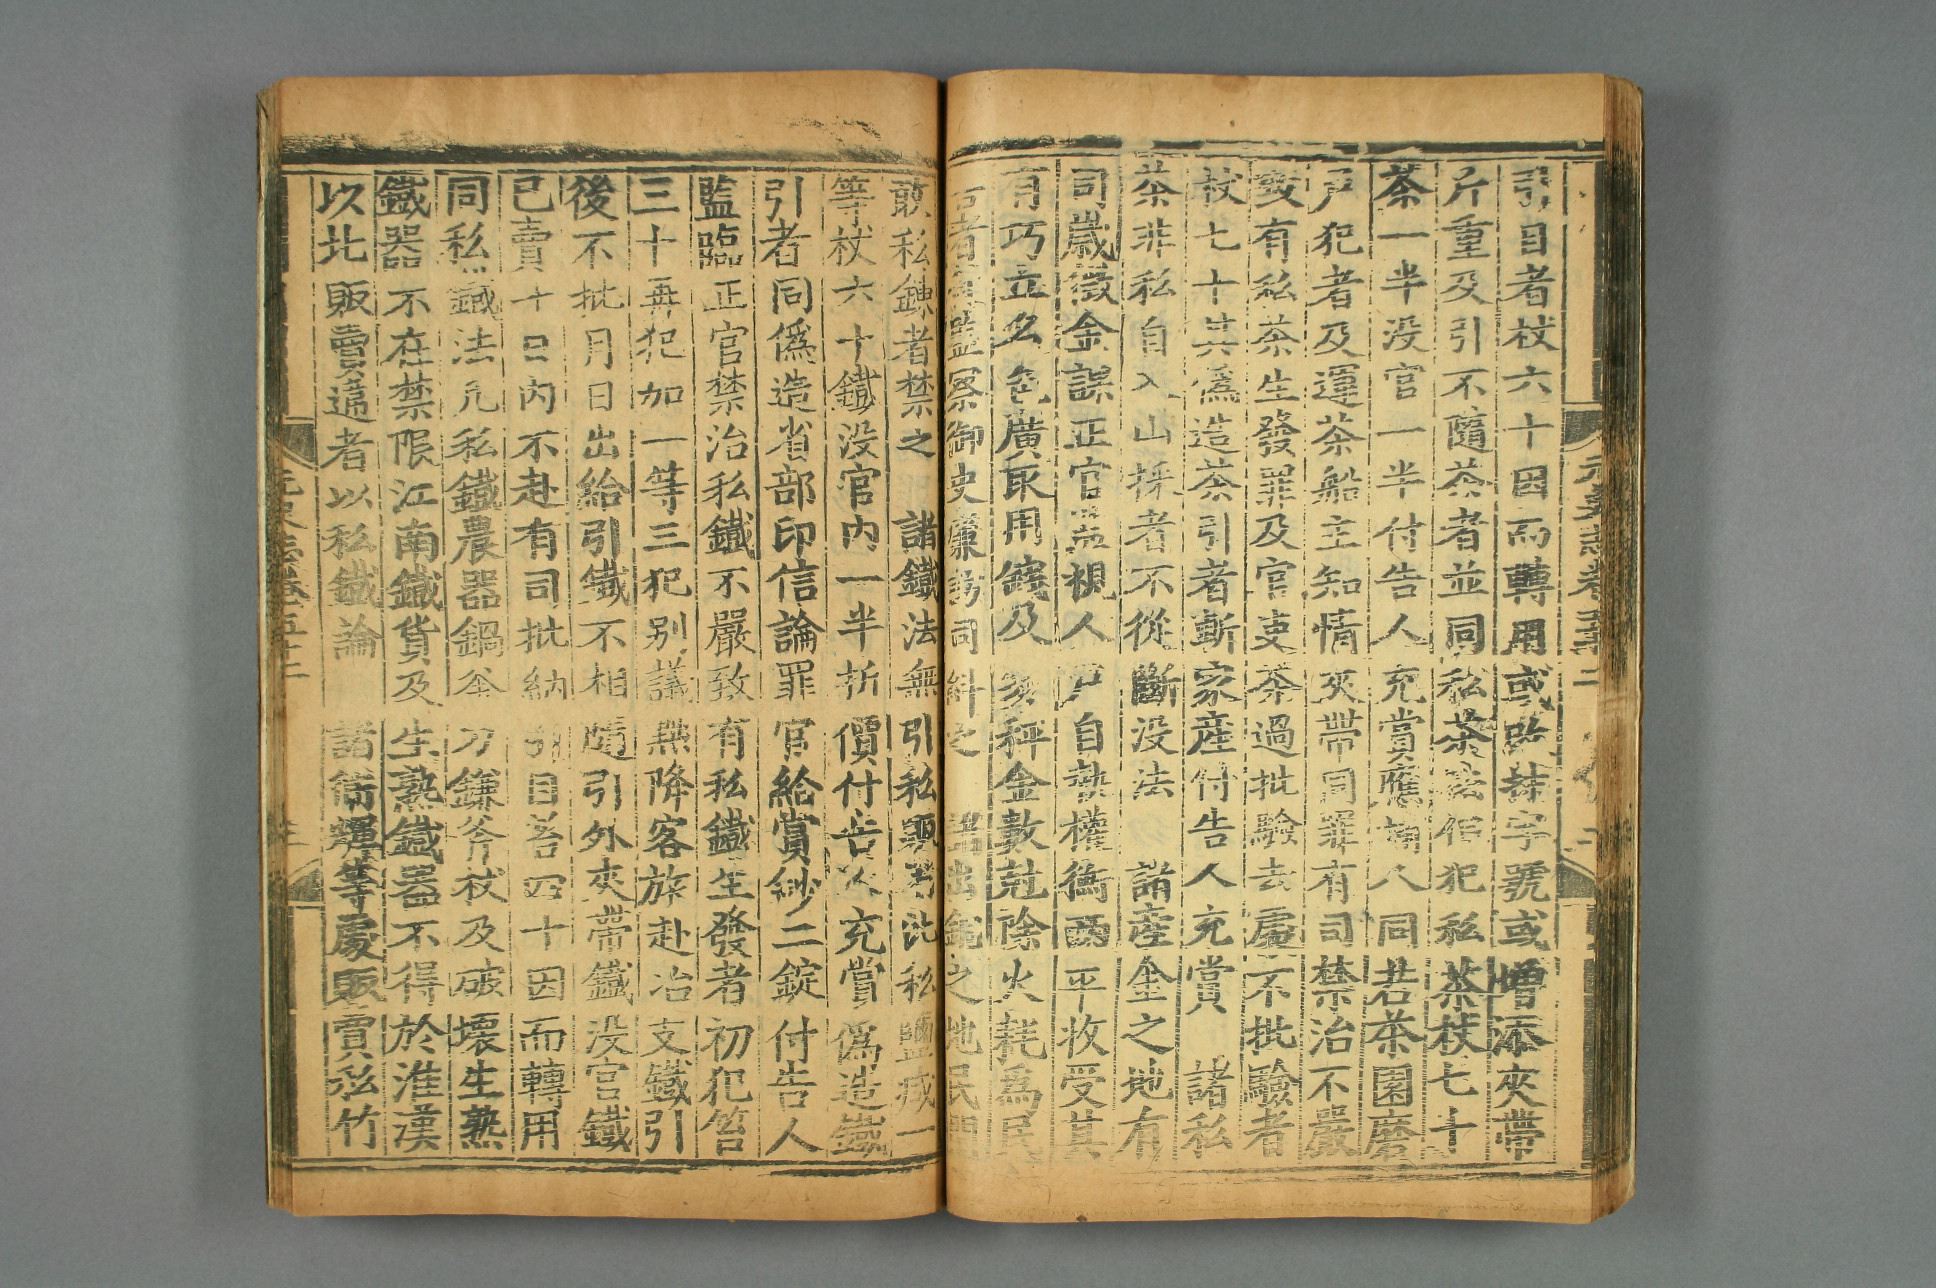 引目者杖六十因而轉用或改抹字號或增添夾帶
斤重及引不隨茶者並同私茶法但犯私茶杖七十
茶一半没官一半付告人充賞應捕人同若茶園磨
戸犯者及運茶船主知情夾帶同罪有司禁治不嚴
致有私茶生發罪及官吏茶過批驗去處不批驗者
杖七十其偽造茶引者斬家産付告人充賞 諸私
茶非私自入山採者不從斷没法 諸産金之地有
司歲徵金課正官監視人戸自執權衡兩平收受其
有巧立名色廣取用錢及多秤金數剋除火耗爲民
害者從監察御史廉訪司糾之 諸出銅之地民間
敢私鍊者禁之 諸鐵法無引私販者比私鹽減一
等杖六十鐵没官内一半折價付告人充賞偽造鐵
引者同偽造省部印信論罪官給賞鈔二錠付告人
監臨正官禁治私鐵不嚴致有私鐵生發者初犯笞
三十再犯加一等三犯别議黜降客旅赴冶支鐵引
後不批月日出給引鐵不相隨引外夾帶鐵没官鐵
已賣十日内不赴有司批納引目笞四十因而轉用
同私鐵法凡私鐵農器鍋釜刀鎌斧杖及破壞生熟
鐵器不在禁限江南鐵貨及生熟鐵器不得於淮漢
以北販賣違者以私鐵論 諸衛輝等處販賣私竹
元史志卷五十二